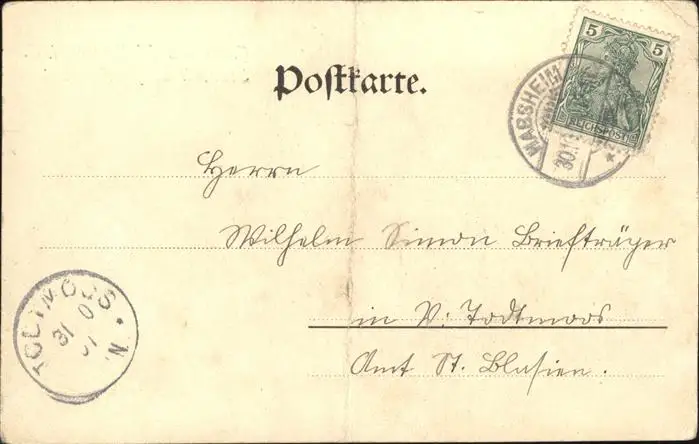 5 5
REICHSPOST
HABSHEIM
30.1
Postkarte.
Herrn
Wilhelm Simon Briefträger
in V. Todtmoos
Amt St. Blasien.
TODTMOOS
31 0
01